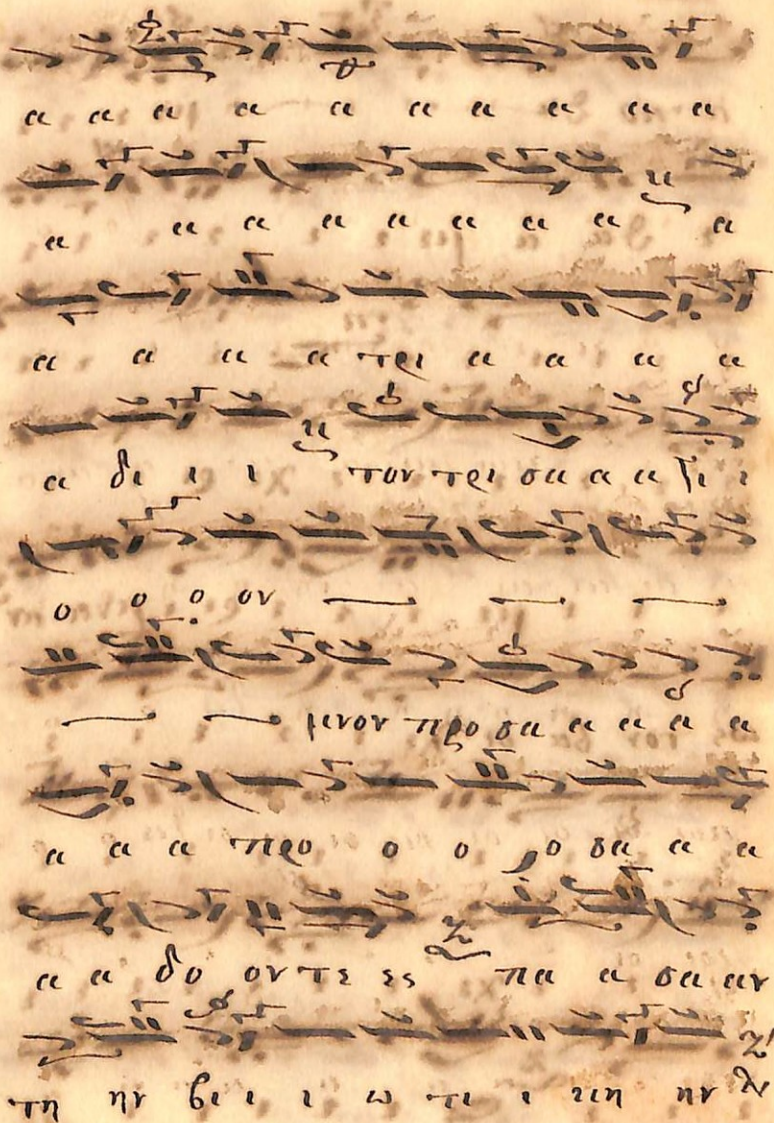 α α α α α α α α α α
α α α α α α α α α
α α α α τρι α α α α
α δι ι ι τον τρι σα α α γι ι
ο ο ο ον
μνον προ σα α α α α
α α α προ ο ο ρο σα α α
α α δο ον τε ες πα α σα αν
τη ην βι ι ι ω τι ι κη ην